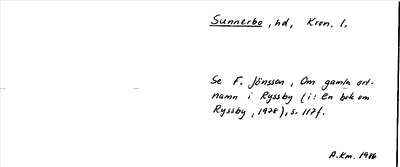 Sunnerbo, hd, Kron. l.
Se F. Jönsson, Om gamla ort-
namn i Ryssby (i: En bok om
Ryssby, 1978), s. 117f.
A.Km. 1986